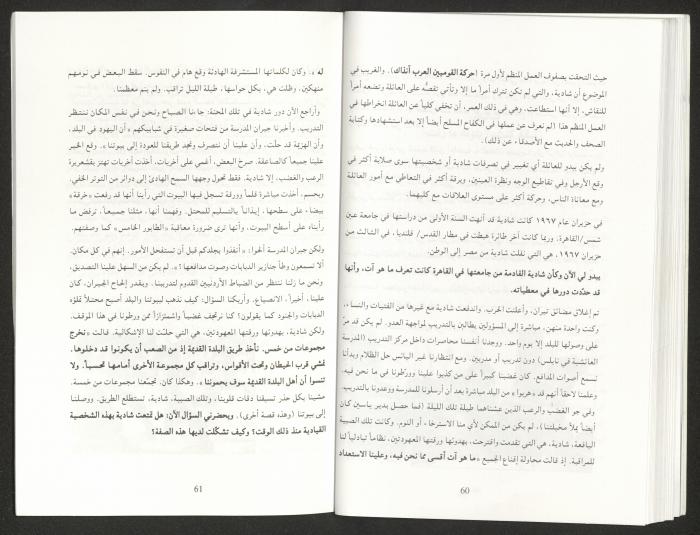 حيث التحقت بصفوف العمل المنظم لأول مرة (حركة القوميين العرب آنذاك). والغريب في
الموضوع أن شادية، والتي لم تكن تترك أمراً ما إلا وتأتي تقصّه على العائلة وتضعه أمراً
للنقاش، إلا أنها استطاعت، وهي في ذلك العمر، أن تخفي كلياً عن العائلة انخراطها في
العمل المنظم هذا (لم نعرف عن عملها في الكفاح المسلح أيضاً إلا بعد استشهادها وكتابة
الصحف والحديث مع الأصدقاء عن ذلك).
ولم يكن يبدو للعائلة أي تغيير في تصرفات شادية أو شخصيتها سوى صلابة أكثر في
وقع الأرجل وفي تقاطيع الوجه ونظرة العينين، ورقة أكثر في التعاطي مع أمور العائلة
ومع معاناة الناس، وحركة أكثر على مستوى العلاقات مع كليهما.
في حزيران عام ١٩٦٧ كانت شادية قد أنهت السنة الأولى من دراستها في جامعة عين
شمس/القاهرة، وربما كانت آخر طائرة هبطت في مطار القدس/ قلنديا، في الثالث من
حزيران ١٩٦٧، هي التي نقلت شادية من مصر إلى الوطن.
يبدو لي الآن وكأن شادية القادمة من جامعتها في القاهرة كانت تعرف ما هو آت، وأنها
قد حدّدت دورها في معطياته.
تم إغلاق مضائق تيران، وأعلنت الحرب. واندفعت شادية مع غيرها من الفتيات والنساء،
وكنت واحدة منهن، مباشرة إلى المسؤولين يطالبن بالتدريب لمواجهة العدو. لم يكن قد مرّ
على وصولها للبلد إلا يوم واحد. ووجدنا أنفسنا محاصرات داخل مركز التدريب (المدرسة
العائشية في نابلس) دون تدريب أو مدربين. ومع انتظارنا غير اليائس حل الظلام وبدأنا
نسمع أصوات المدافع. كان غضبنا كبيراً على من كذبوا علينا وورّطونا في ما نحن فيه،
وعلمنا لاحقاً أنهم قد «هربوا» من البلد مباشرة بعد أن أرسلونا للمدرسة ووعدونا بالتدريب.
وفي جو الغضب والرعب الذين عشناهما طيلة تلك الليلة (فما حصل بدير ياسين كان
أيضاً يملأ مخيلتنا)، لم يكن من الممكن لأي منا الاسترخاء أو النوم. وكانت تلك الصبية
اليافعة، شادية، هي التي تقدمت واقترحت، بهدوئها ورقتها المعهودتين، نظاماً تبادلياً لنا
للمراقبة. إذ قالت محاولة إقناع الجميع «ما هو آت أقسى مما نحن فيه، وعلينا الاستعداد
60
له». وكان لكلماتها المستشرفة الهادئة وقع هام في النفوس. سقط البعض في نومهم
منهكين، وظلت هي، بكل حواسها، طيلة الليل تراقب. ولم ينم معظمنا.
وأراجع الآن دور شادية في تلك المحنة: جاءنا الصباح ونحن في نفس المكان ننتظر
التدريب. وأخبرنا جيران المدرسة من فتحات صغيرة في شبابيكهم «أن اليهود في البلد،
وأن الهزيمة قد حلّت، وأن علينا أن نتصرف ونجد طريقنا للعودة إلى بيوتنا». وقع الخبر
علينا جميعاً كالصاعقة. صرخ البعض، أغمي على أخريات، أخذت أخريات تهتز بقشعريرة
الرعب والغضب، إلا شادية. فقط تحول وجهها السمح الهادئ إلى دوائر من التوتر الخفي.
وبحسم، أخذت مباشرة قلماً وورقة تسجل فيها البيوت التي رأينا أنها قد رفعت «خرقة»
بيضاء على سطحها، إيذاناً بالتسليم للمحتل. وفهمنا أنها، مثلنا جميعاً، ترفض ما
رأيناه على أسطح البيوت، وأنها ترى ضرورة معاقبة «الطابور الخامس» كما وصفتهم.
ولكن جيران المدرسة ألحوا: «أنفذوا بجلدكم قبل أن تستفحل الأمور. إنهم في كل مكان.
ألا تسمعون وطأ جنازير الدبابات وصوت مدافعها؟». لم يكن من السهل علينا التصديق،
ونحن ما زلنا ننتظر من الضباط الأردنيين القدوم لتدريبنا. وبقدر إلحاح الجيران، كان
علينا، أخيراً، الانصياع. وأربكنا السؤال: كيف نذهب لبيوتنا والبلد أصبح محتلاً تملؤه
الدبابات والجنود كما يقولون؟ كنا نرتجف غضباً واشمئزازاً ممن ورطونا في هذا الموقف.
ولكن شادية، بهدوئها ورقتها المعهودتين، هي التي حلّت لنا الإشكالية. قالت «نخرج
مجموعات من خمس. نأخذ طريق البلدة القديمة إذ من الصعب أن يكونوا قد دخلوها.
نمشي قرب الحيطان وتحت الأقواس، وتراقب كل مجموعة الأخرى أمامها تحسباً. ولا
تنسوا أن أهل البلدة القديمة سوف يحموننا». وهكذا كان. تجمعنا مجموعات من خمسة.
مشينا بكل حذر تسبقنا دقات قلوبنا، وتلك الصبية، شادية، تستطلع الطريق. ووصلنا
إلى بيوتنا (وهذه قصة أخرى). ويحضرني السؤال الآن: هل تمتعت شادية بهذه الشخصية
القيادية منذ ذلك الوقت؟ وكيف تشكّلت لديها هذه الصفة؟
61